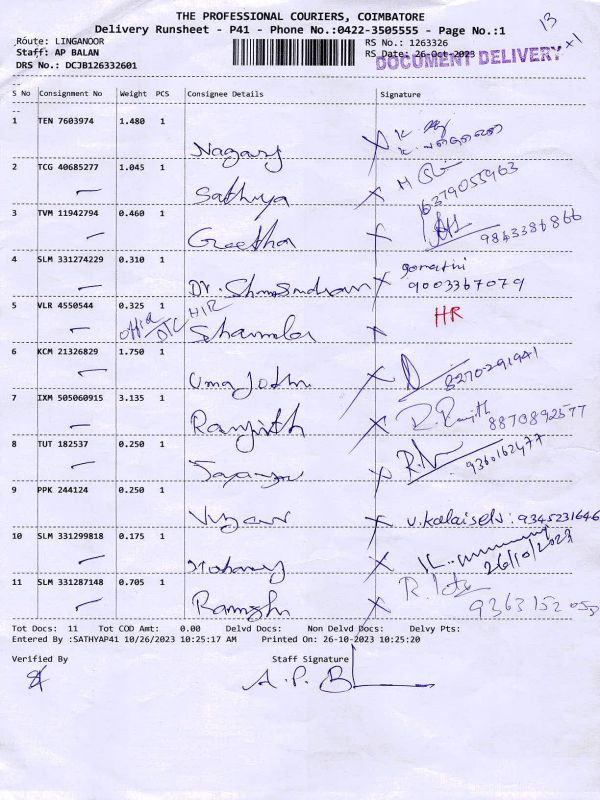 THE PROFESSIONAL COURIERS, COIMBATORE
Delivery Runsheet - P41 - Phone No.:0422-3505555 - Page No.:1
13
Route: LINGANOOR
RS No.: 1263326
Staff: AP BALAN
RS Date: 26-Oct-2023
DOCUMENT DELIVERY x1
DRS No.: DCJB126332601
S No Consignment No Weight PCS Consignee Details Signature
1 TEN 7603974 1.480 1 Nagaraj
2 TCG 40685277 1.045 1 Sathya 6379055963
3 TVM 11942794 0.460 1 Geetha
4 SLM 331274229 0.310 1 Dr. gomathi
9003367079
5 VLR 4550544 0.325 1 HR
6 KCM 21326829 1.750 1 Uma Jothi 8270291941
7 IXM 505060915 3.135 1 Ranjith R. Ranjith 8870892577
8 TUT 182537 0.250 1 9360162477
9 PPK 244124 0.250 1 V. Kalaiselvi: 9345231646
10 SLM 331299818 0.175 1 26/10/2023
11 SLM 331287148 0.705 1 Ramesh
Tot Docs: 11 Tot COD Amt: 0.00 Delvd Docs: Non Delvd Docs: Delvy Pts:
Entered By :SATHYAP41 10/26/2023 10:25:17 AM Printed On: 26-10-2023 10:25:20
Verified By Staff Signature
A. P. B